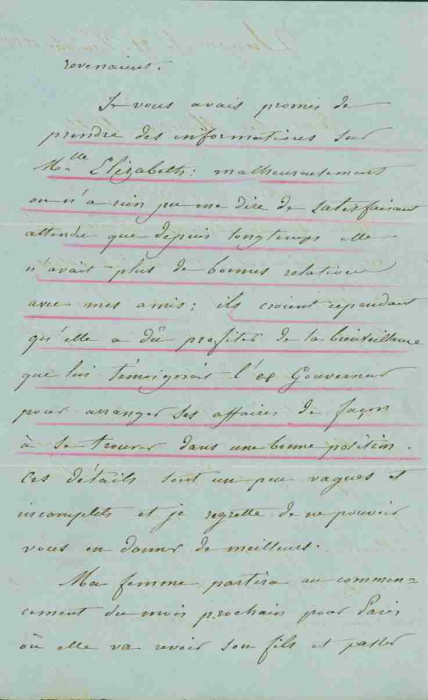 revenaient.
Je vous avais promis de
prendre des informations sur
Mlle Elisabeth; malheureusement
on n'a rien pu me dire de satisfaisant
attendu que depuis longtemps elle
n'avait plus de bonnes relations
avec mes amis; ils croient cependant
qu'elle a dû profiter de la bienveillance
que lui témoignait l'ex Gouverneur
pour arranger ses affaires de façon
à se trouver dans une bonne position.
Ces détails sont un peu vagues et
incomplets et je regrette de ne pouvoir
vous en donner de meilleurs.
Ma femme partira au commen-
cement du mois prochain pour Paris
où elle va revoir son fils et passer